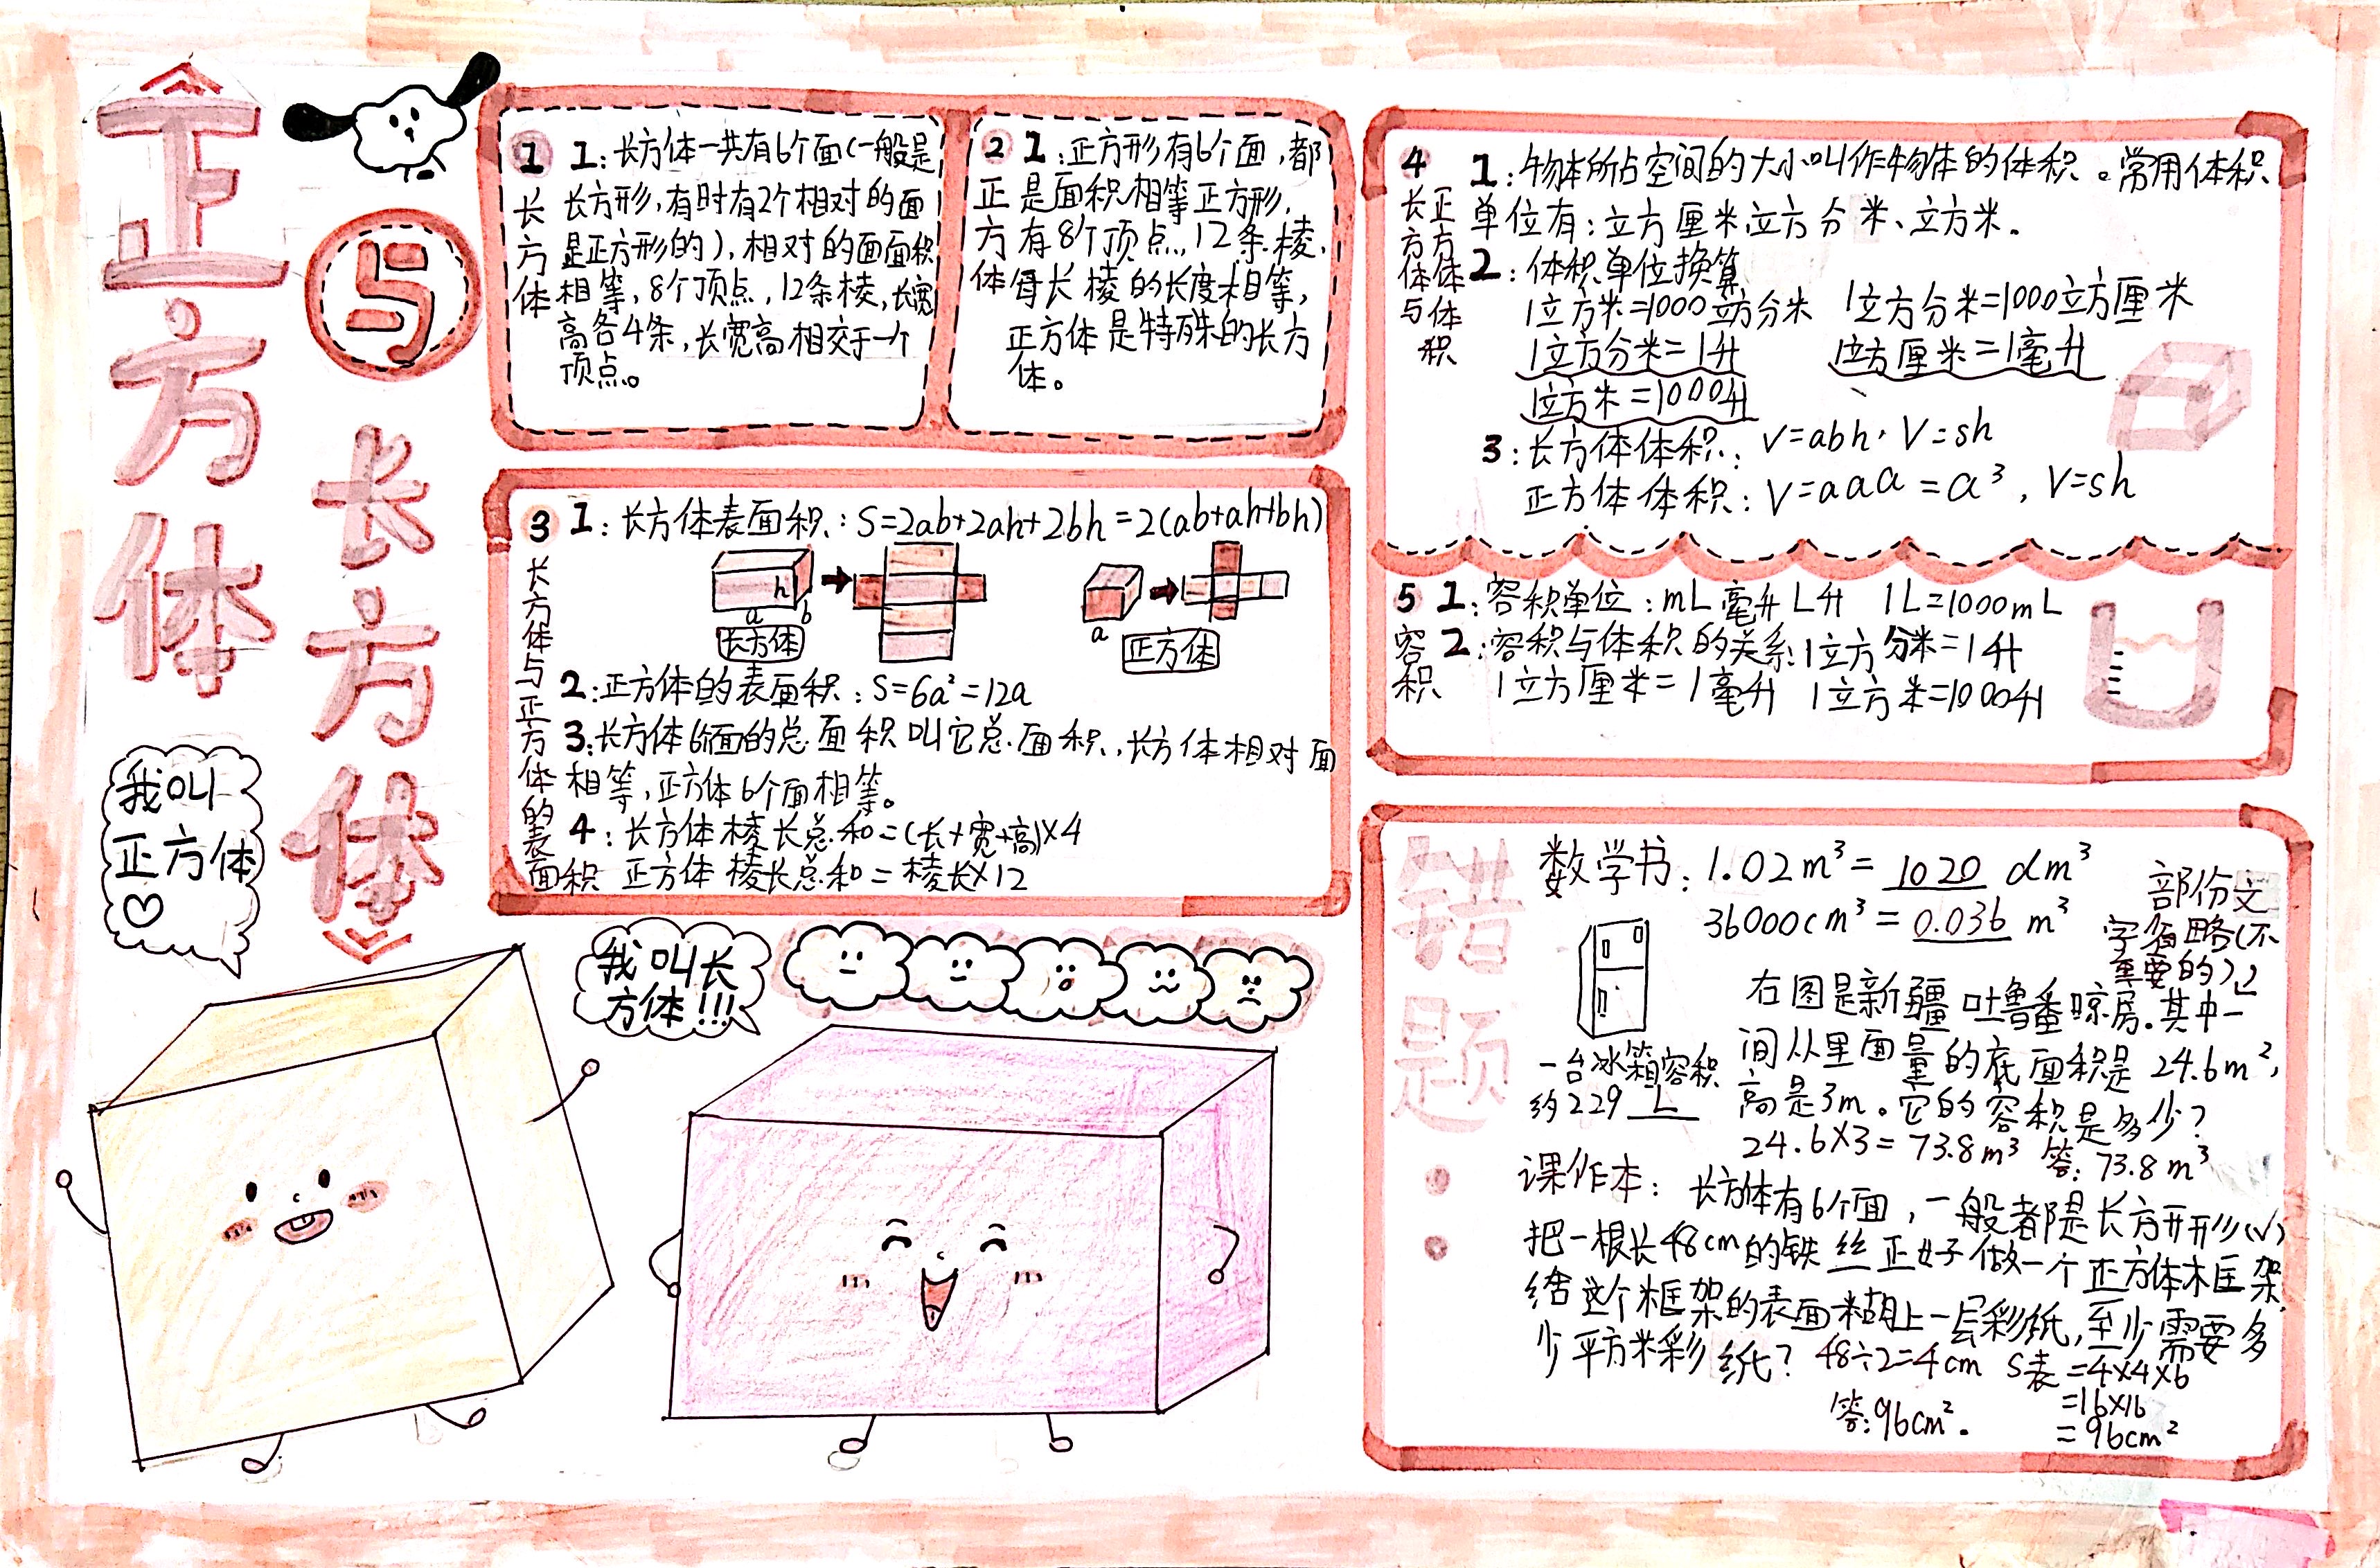 正方体
与
长方体
我叫
正方体
♡
1 长方体
1:长方体一共有6个面(一般是
长方形,有时有2个相对的面
是正方形的),相对的面面积
相等,8个顶点,12条棱,长宽
高各4条,长宽高相交于一个
顶点。
2 正方体
1:正方形有6个面,都
是面积相等正方形,
有8个顶点,12条棱,
每长棱的长度相等,
正方体是特殊的长方
体。
3 长方体与正方体的表面积
1:长方体表面积:S=2ab+2ah+2bh=2(ab+ah+bh)
h
a b
长方体
a
正方体
2:正方体的表面积:S=6a²=12a
3:长方体6个面的总面积叫它总面积,长方体相对面
相等,正方体6个面相等。
4:长方体棱长总和=(长+宽+高)×4
正方体棱长总和=棱长×12
我叫长
方体!!!
4 长方体与正方体体积
1:物体所占空间的大小叫作物体的体积。常用体积
单位有:立方厘米、立方分米、立方米。
2:体积单位换算
1立方米=1000立方分米 1立方分米=1000立方厘米
1立方分米=1升 1立方厘米=1毫升
1立方米=1000升
3:长方体体积:V=abh,V=sh
正方体体积:V=aaa=a³,V=sh
5 容积
1:容积单位:mL毫升 L升 1L=1000mL
2:容积与体积的关系:1立方分米=1升
1立方厘米=1毫升 1立方米=1000升
错题:
数学书:1.02m³=1020 dm³
36000cm³=0.036 m³
部份文
字省略(不
重要的)
一台冰箱容积
约229 L
右图是新疆吐鲁番晾房.其中一
间从里面量的底面积是24.6m²,
高是3m。它的容积是多少?
24.6×3=73.8m³ 答:73.8m³
课作本:长方体有6个面,一般都是长方形(√)
把一根长48cm的铁丝正好做一个正方体框架,
给这个框架的表面糊上一层彩纸,至少需要多
少平方米彩纸?48÷2=4cm S表=4×4×6
=16×16
答:96cm². =96cm²